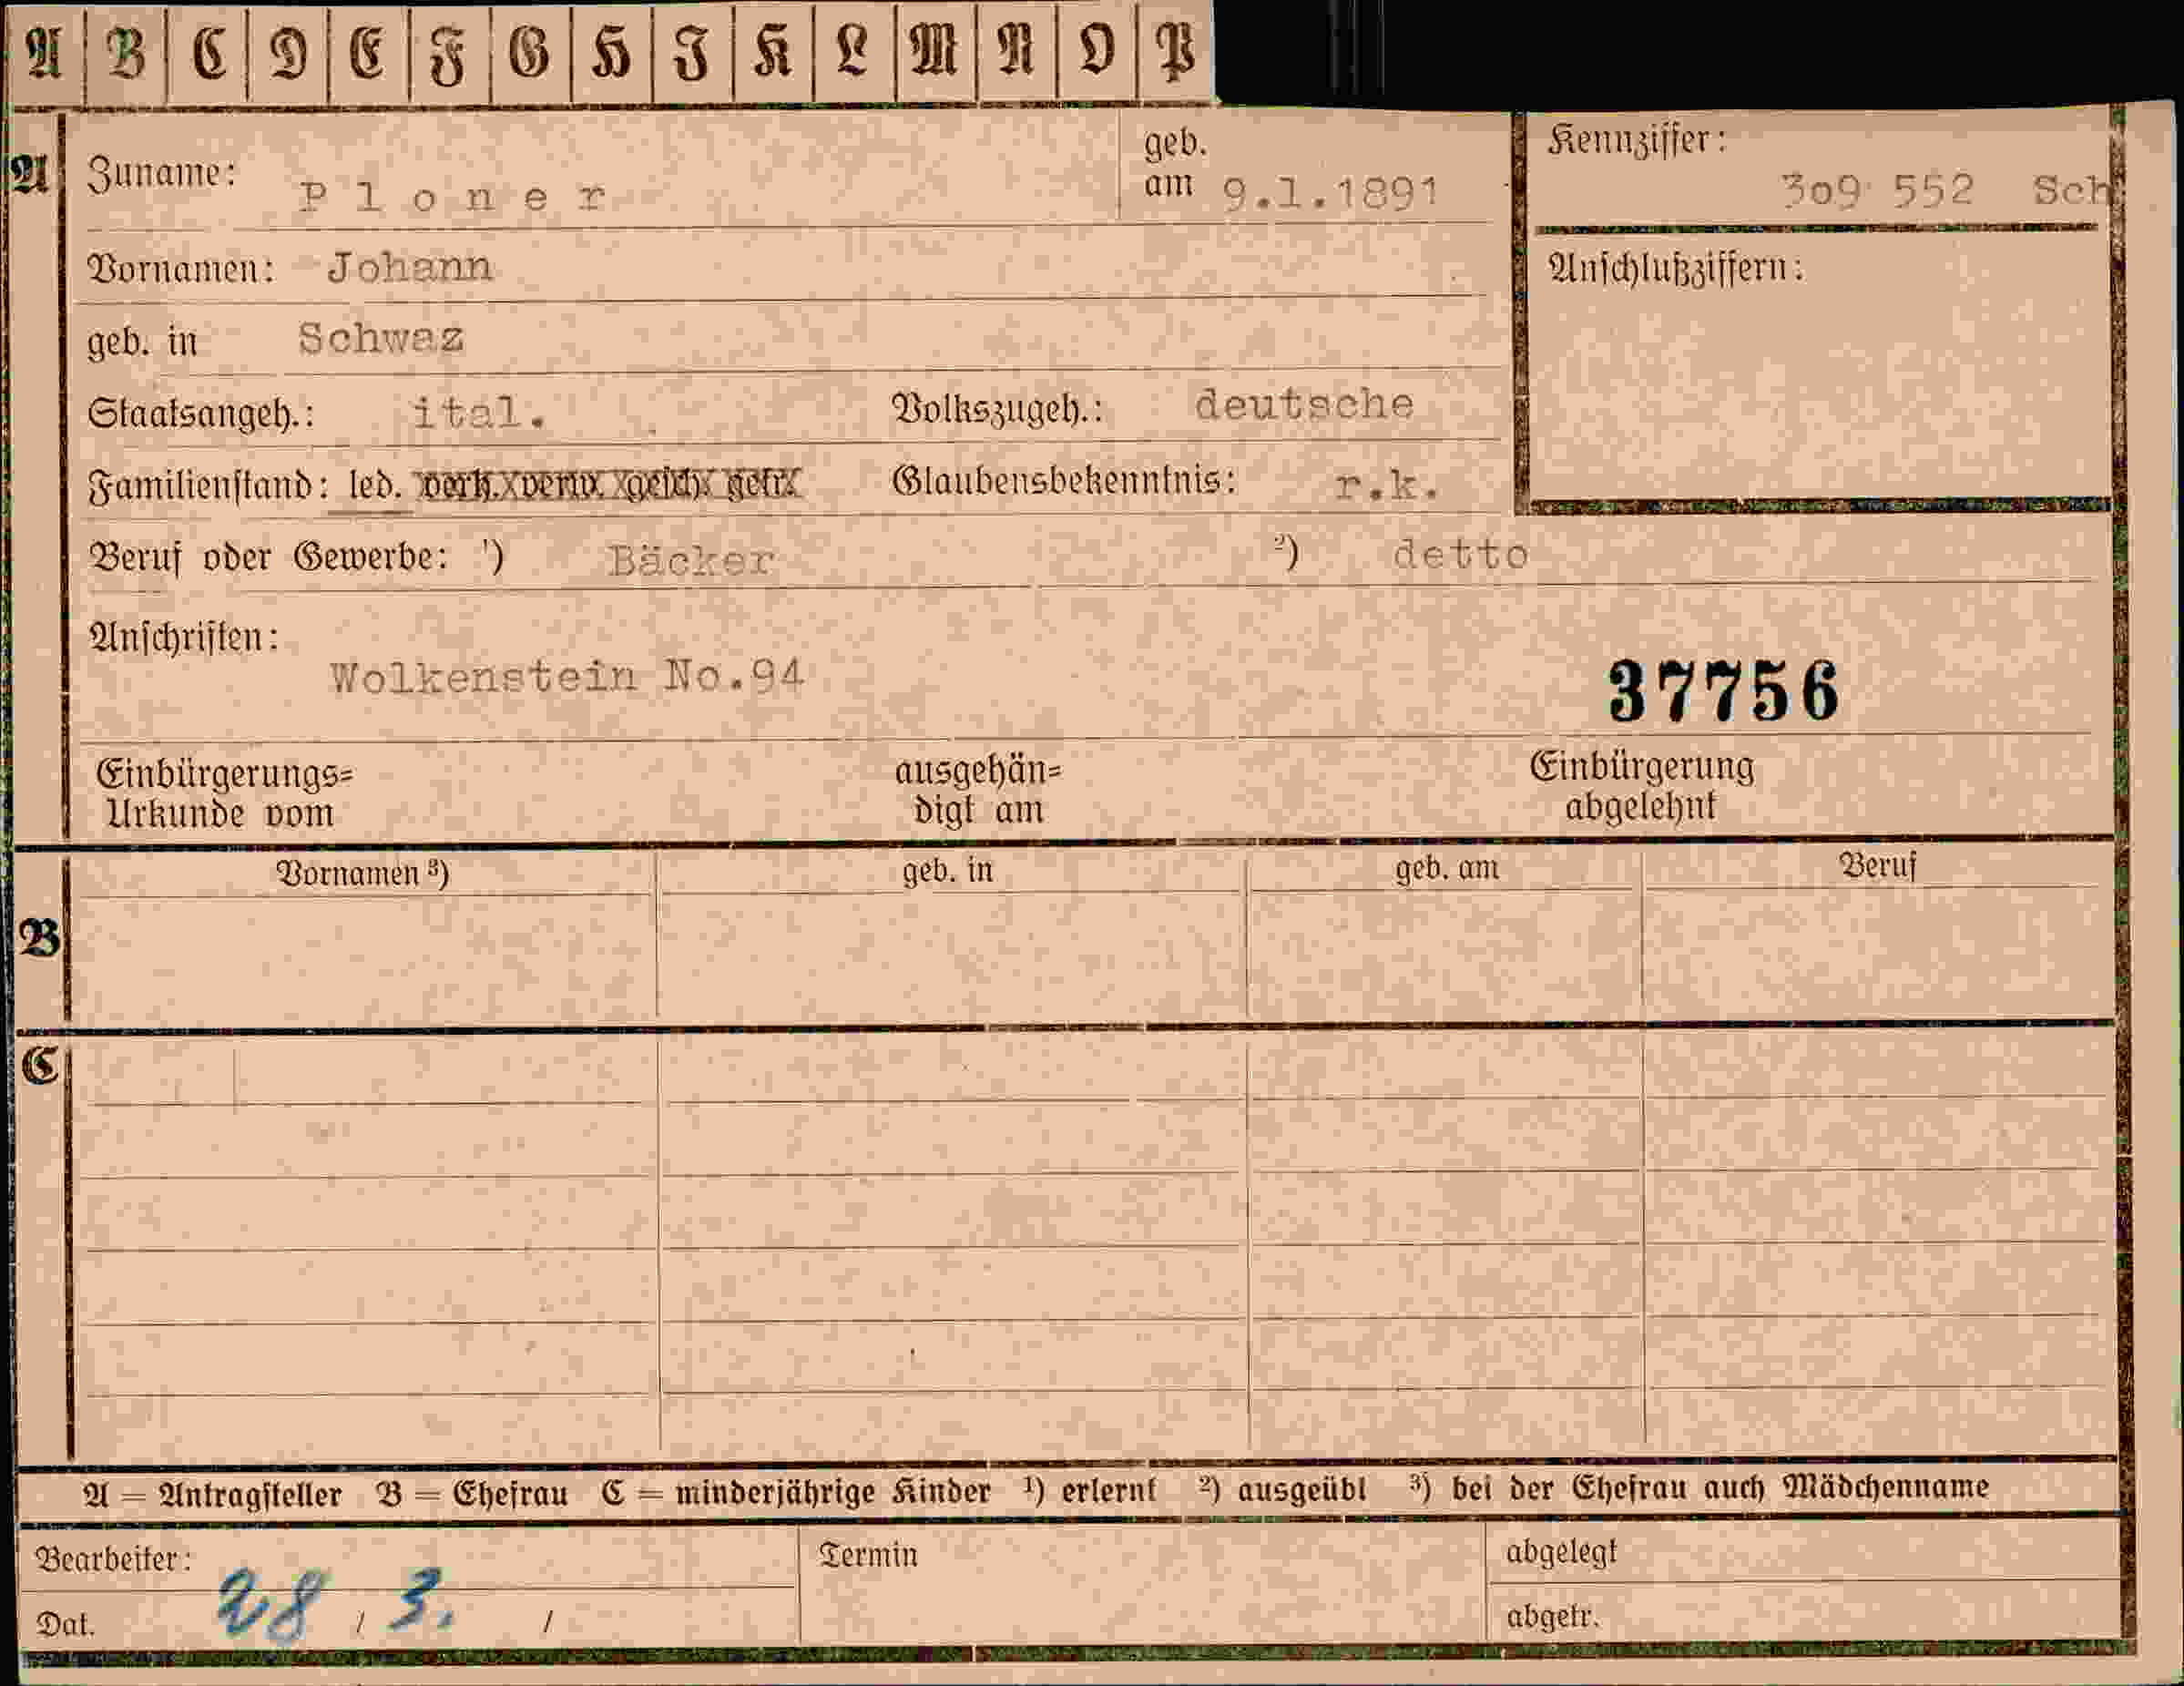 A B C D E F G H I K L M N O P
A Zuname: Ploner geb. am 9.1.1891 Kennziffer: 309 552 Sch
Vornamen: Johann Anschlußziffern:
geb. in Schwaz
Staatsangeh.: ital. Volkszugeh.: deutsche
Familienstand: led. verh. verw. gesch. getr. Glaubensbekenntnis: r.k.
Beruf oder Gewerbe: ¹) Bäcker ²) detto
Anschriften:
Wolkenstein No.94 37756
Einbürgerungs= ausgehän= Einbürgerung
Urkunde vom digt am abgelehnt
Vornamen ³) geb. in geb. am Beruf
B
C
A = Antragsteller B = Ehefrau C = minderjährige Kinder ¹) erlernt ²) ausgeübt ³) bei der Ehefrau auch Mädchenname
Bearbeiter: Termin abgelegt
Dat. 28 / 3. / abgetr.